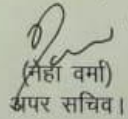 (नेहा वर्मा)
अपर सचिव।